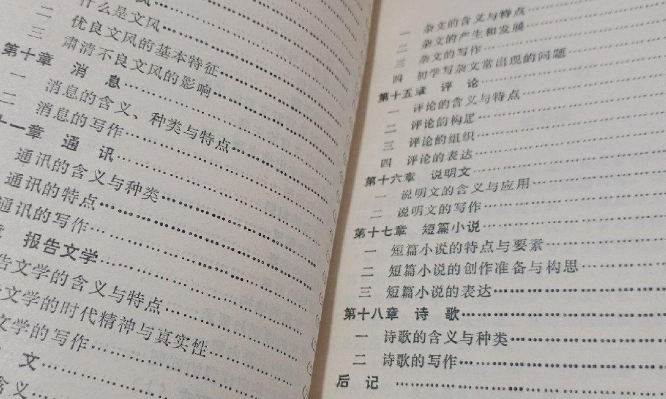 什么是文风
二 优良文风的基本特征
三 肃清不良文风的影响
第十章 消 息
一 消息的含义、种类与特点
二 消息的写作
十一章 通 讯
通讯的含义与种类
通讯的特点
通讯的写作
报告文学
告文学的含义与特点
文学的时代精神与真实性
文学的写作
文
含义
一 杂文的含义与特点
二 杂文的产生和发展
三 杂文的写作
四 初学写杂文常出现的问题
第十五章 评 论
一 评论的含义与特点
二 评论的构思
三 评论的组织
四 评论的表达
第十六章 说明文
一 说明文的含义与应用
二 说明文的写作
第十七章 短篇小说
一 短篇小说的特点与要素
二 短篇小说的创作准备与构思
三 短篇小说的表达
第十八章 诗 歌
一 诗歌的含义与种类
二 诗歌的写作
后 记